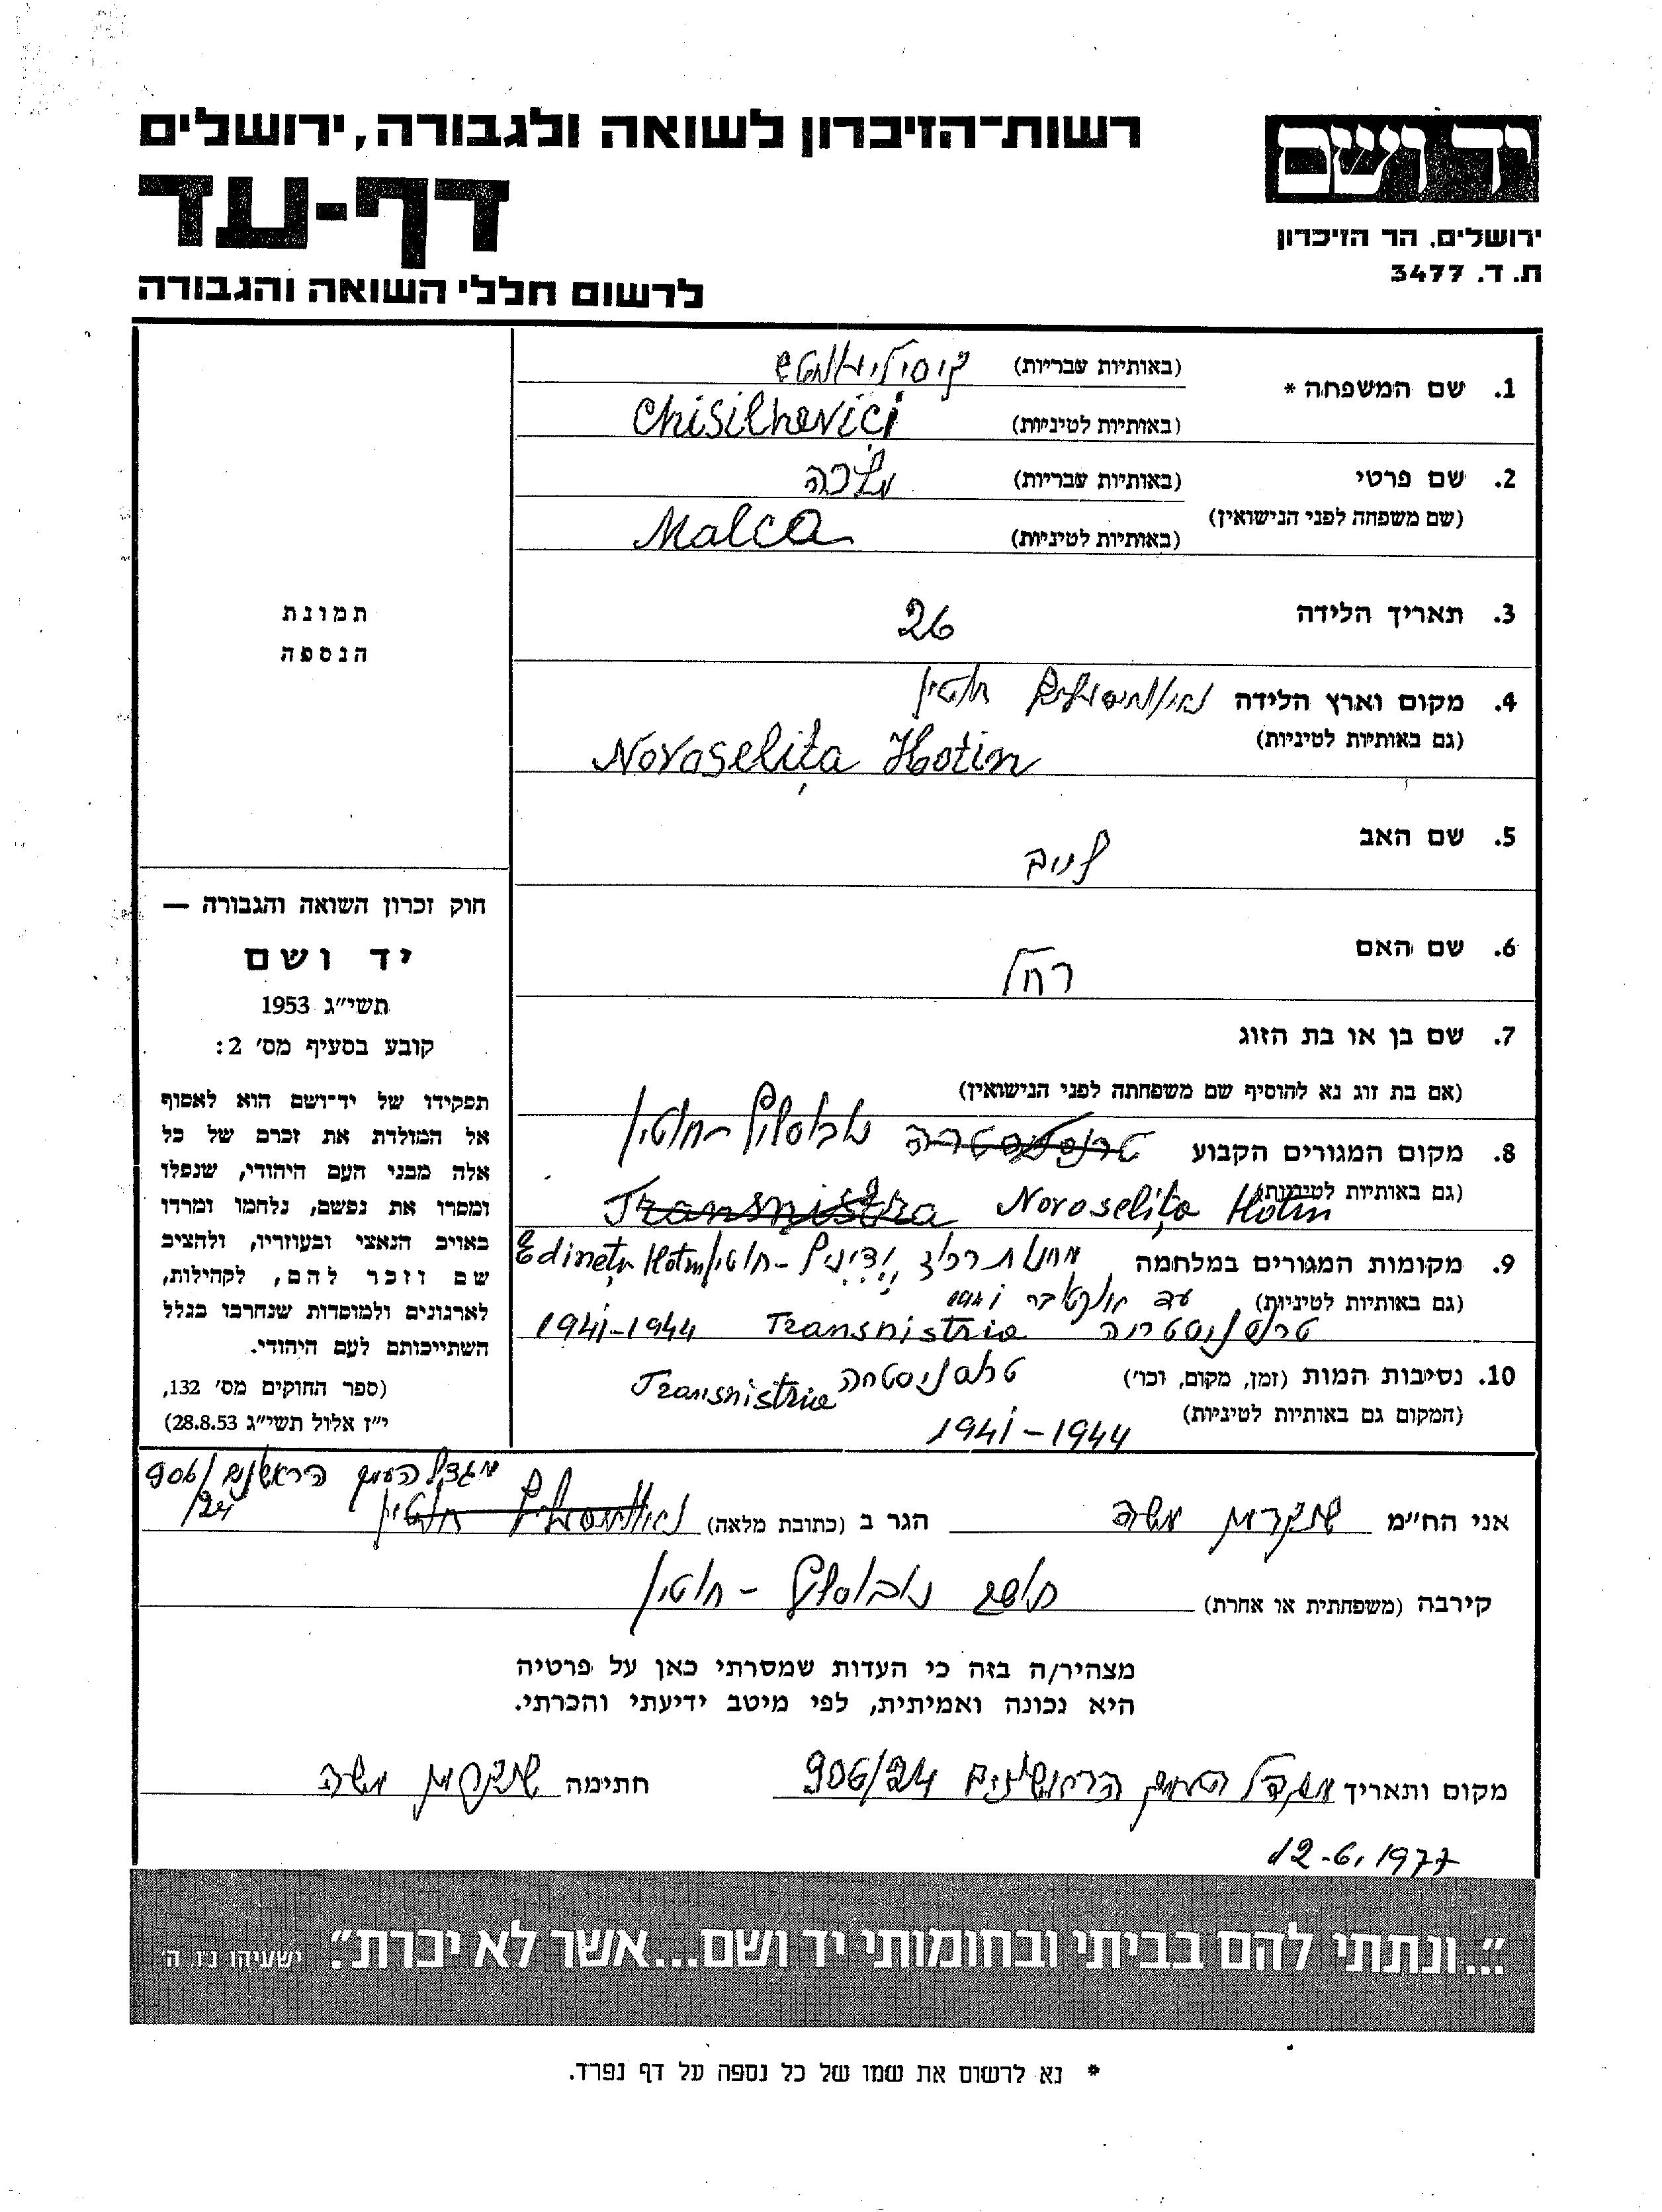 יד ושם
ירושלים, הר הזיכרון
ת. ד. 3477
רשות-הזיכרון לשואה ולגבורה, ירושלים
דף-עד
לרשום חללי השואה והגבורה
1. שם המשפחה * (באותיות עבריות)
(באותיות לטיניות) Chisilhevici
2. שם פרטי (באותיות עבריות) מלכה
(שם משפחה לפני הנישואין) (באותיות לטיניות) Malca
3. תאריך הלידה 26
4. מקום וארץ הלידה חוטין
(גם באותיות לטיניות) Novoselița Hotin
5. שם האב
6. שם האם רחל
7. שם בן או בת הזוג
(אם בת זוג נא להוסיף שם משפחתה לפני הנישואין)
8. מקום המגורים הקבוע טרנסניסטריה נובוסליץ - חוטין
(גם באותיות לטיניות) Transnistria Novoselița Hotin
9. מקומות המגורים במלחמה מחנות ריכוז ידיניץ - חוטין Edineț Hotin
(גם באותיות לטיניות) עד אוקטובר 1941
טרנסניסטריה Transnistria 1941-1944
10. נסיבות המות (זמן, מקום, וכו') טרנסניסטריה Transnistria
(המקום גם באותיות לטיניות) 1941-1944
תמונת
הנספה
חוק זכרון השואה והגבורה —
יד ושם
תשי"ג 1953
קובע בסעיף מס' 2:
תפקידו של יד-ושם הוא לאסוף
אל המולדת את זכרם של כל
אלה מבני העם היהודי, שנפלו
ומסרו את נפשם, נלחמו ומרדו
באויב הנאצי ובעוזריו, ולהציב
שם וזכר להם, לקהילות,
לארגונים ולמוסדות שנחרבו בגלל
השתייכותם לעם היהודי.
(ספר החוקים מס' 132,
י"ז אלול תשי"ג 28.8.53)
מגדל העמק הראשונים 906/
24/
אני הח"מ משה הגר ב (כתובת מלאה) חוטין
קירבה (משפחתית או אחרת) תושב נובוסליץ - חוטין
מצהיר/ה בזה כי העדות שמסרתי כאן על פרטיה
היא נכונה ואמיתית, לפי מיטב ידיעתי והכרתי.
מקום ותאריך מגדל העמק הראשונים 906/24 חתימה משה
12-6.1977
"...ונתתי להם בביתי ובחומותי יד ושם...אשר לא יכרת". ישעיהו נ"ו, ה'
* נא לרשום את שמו של כל נספה על דף נפרד.